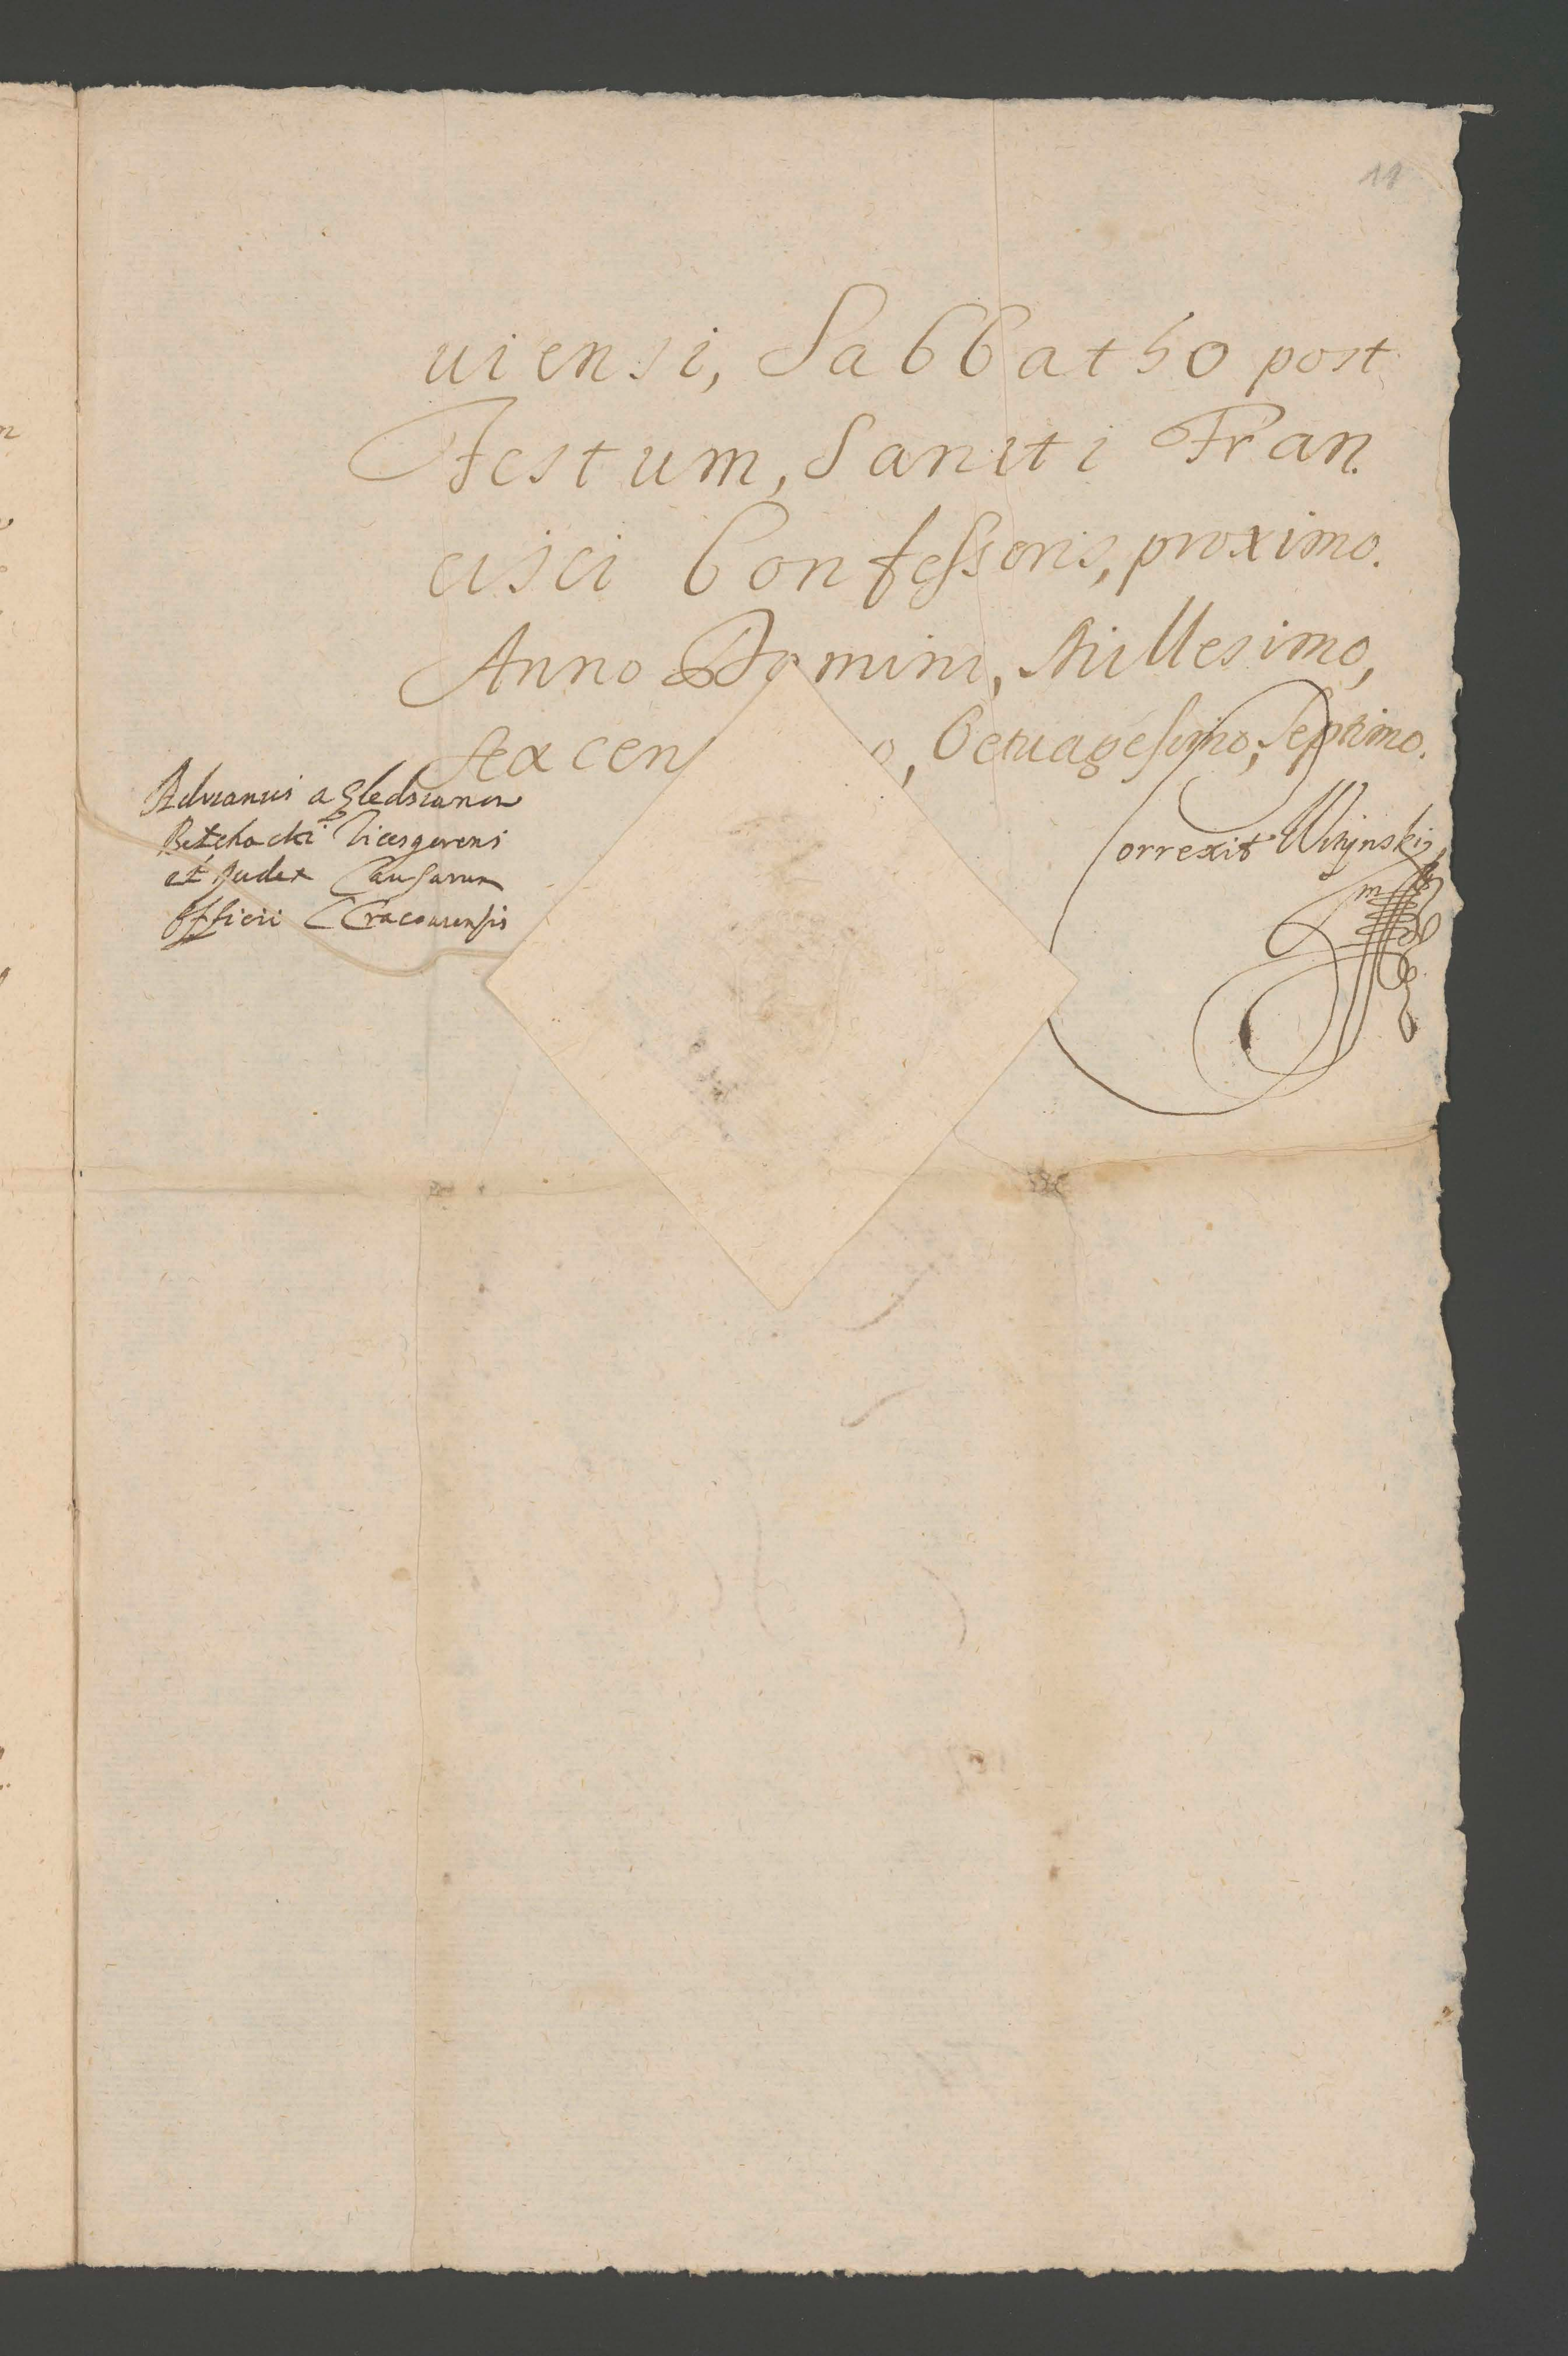 11
uiensi, Sabbatho post
Festum, Sancti Fran.
cisci Confessoris, proximo.
Anno Domini, Millesimo,
Sexcen o, Octuagesimo, Septimo.
Adrianus a
Bełchacki Vicesgerens
et Judex Causarum
Officii Cracouiensis
Correxit